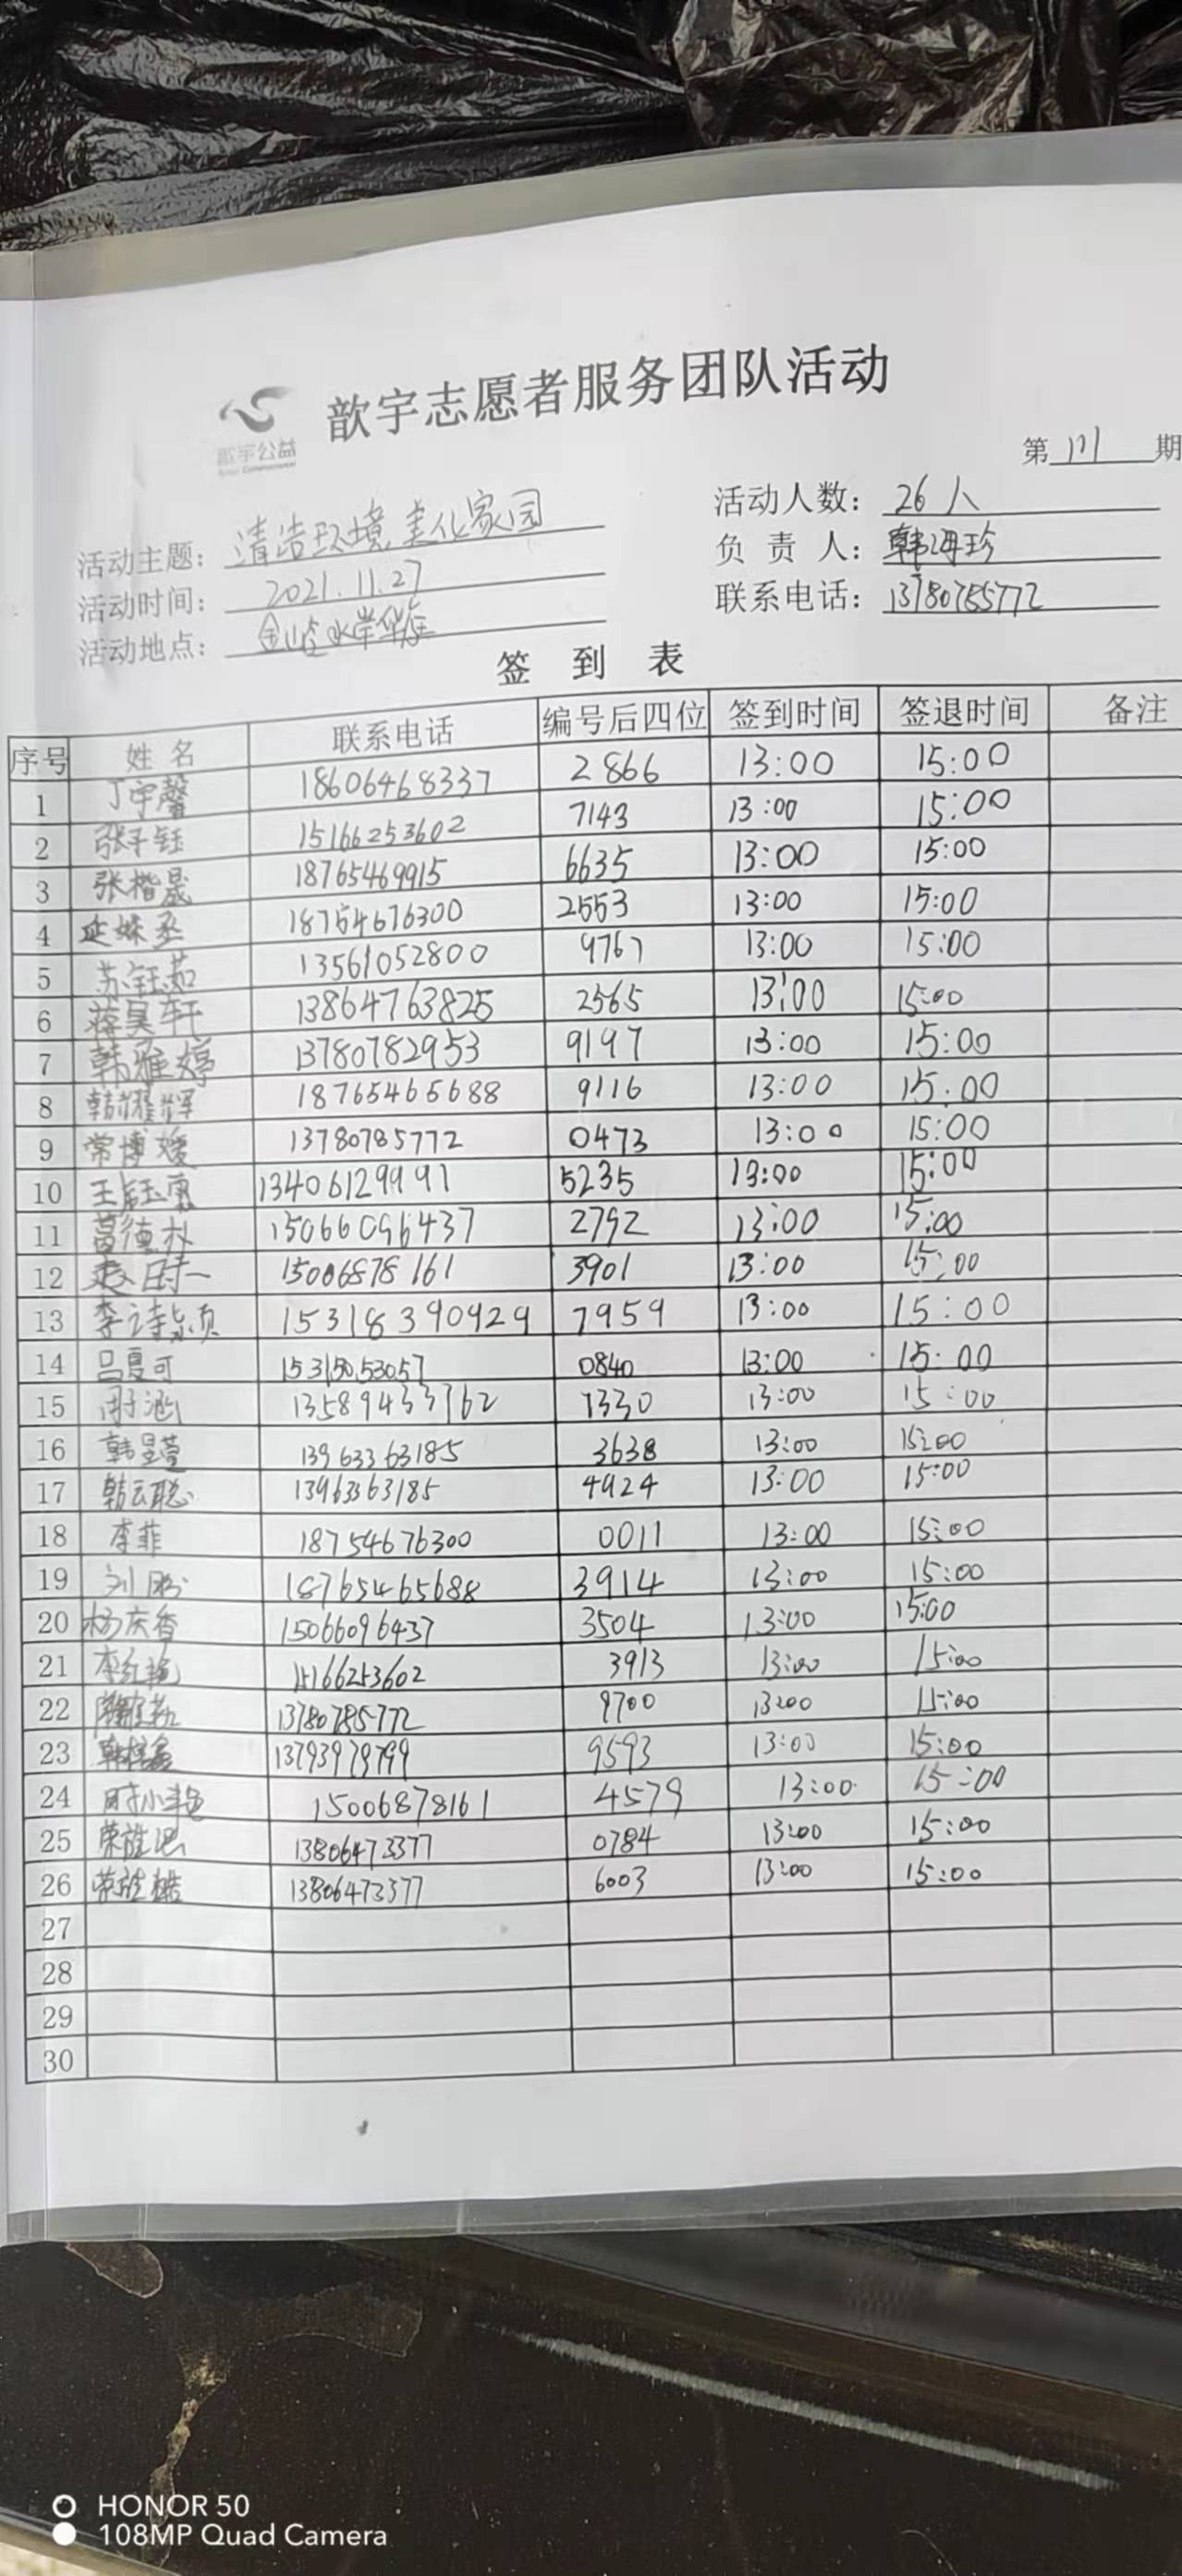 歆宇志愿者服务团队活动
歆宇公益
第 111 期
活动主题： 清洁环境，美化家园
活动人数： 26人
活动时间： 2021.11.27
负责人： 韩海珍
活动地点：
联系电话： 13780785772
签到表
序号 姓名 联系电话 编号后四位 签到时间 签退时间 备注
1 丁宇馨 18606468337 2866 13:00 15:00
2 张子钰 15166253602 7143 13:00 15:00
3 张楷晟 18765469915 6635 13:00 15:00
4 延姝丞 18754676300 2553 13:00 15:00
5 苏钰茹 13561052800 9767 13:00 15:00
6 蒋昊轩 13864763825 2565 13:00 15:00
7 韩雅婷 13780782953 9197 13:00 15:00
8 韩耀辉 18765465688 9116 13:00 15:00
9 常博媛 13780785772 0473 13:00 15:00
10 13406129991 5235 13:00 15:00
11 葛德朴 15066096437 2792 13:00 15:00
12 15006878161 3901 13:00 15:00
13 李诗颍 15318390929 7959 13:00 15:00
14 吕夏可 15315053057 0840 13:00 15:00
15 周子涵 13589433762 1330 13:00 15:00
16 韩昱萱 13963363185 3638 13:00 15:00
17 韩云聪 13963363185 4924 13:00 15:00
18 李菲 18754676300 0011 13:00 15:00
19 18765465688 3914 13:00 15:00
20 杨庆香 15066096437 3504 13:00 15:00
21 李红艳 15166253602 3913 13:00 15:00
22 13780785772 9700 13:00 15:00
23 13793979799 9593 13:00 15:00
24 周小艳 15006878161 4579 13:00 15:00
25 13806473377 0784 13:00 15:00
26 13806473377 6003 13:00 15:00
27
28
29
30
HONOR 50
108MP Quad Camera